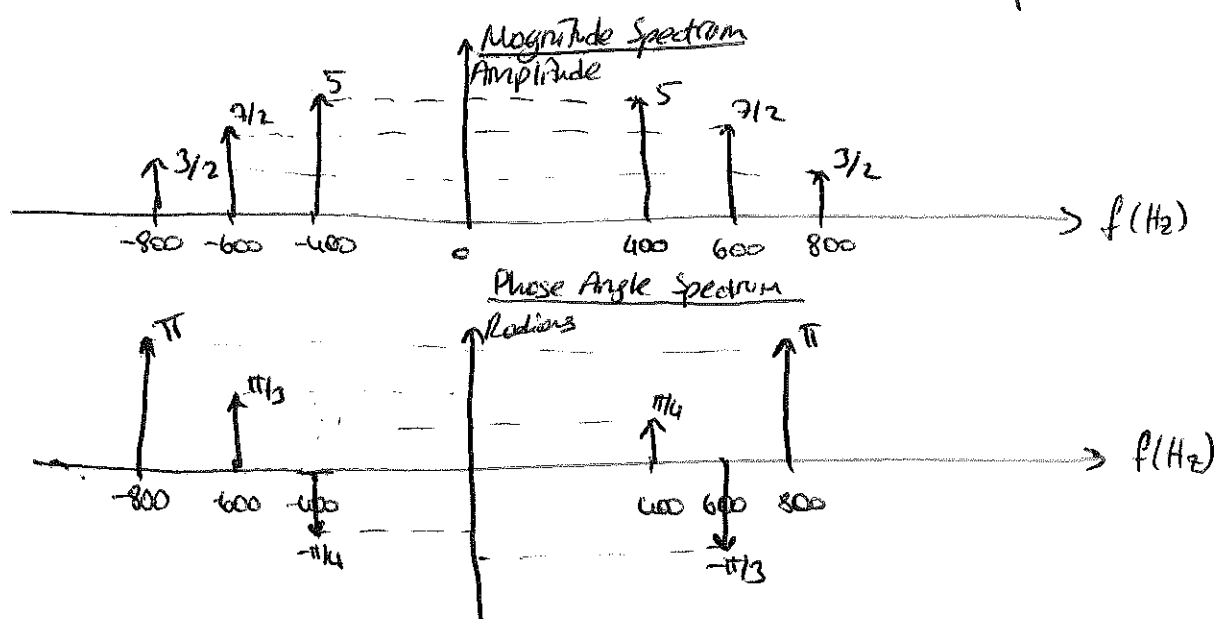 Magnitude Spectrum
Amplitude
5
5
7/2
7/2
3/2
3/2
-800 -600 -400 0 400 600 800
f(Hz)
Phase Angle Spectrum
Radians
π
π
π/3
π/4
f(Hz)
-800 -600 -400 400 600 800
-π/4
-π/3